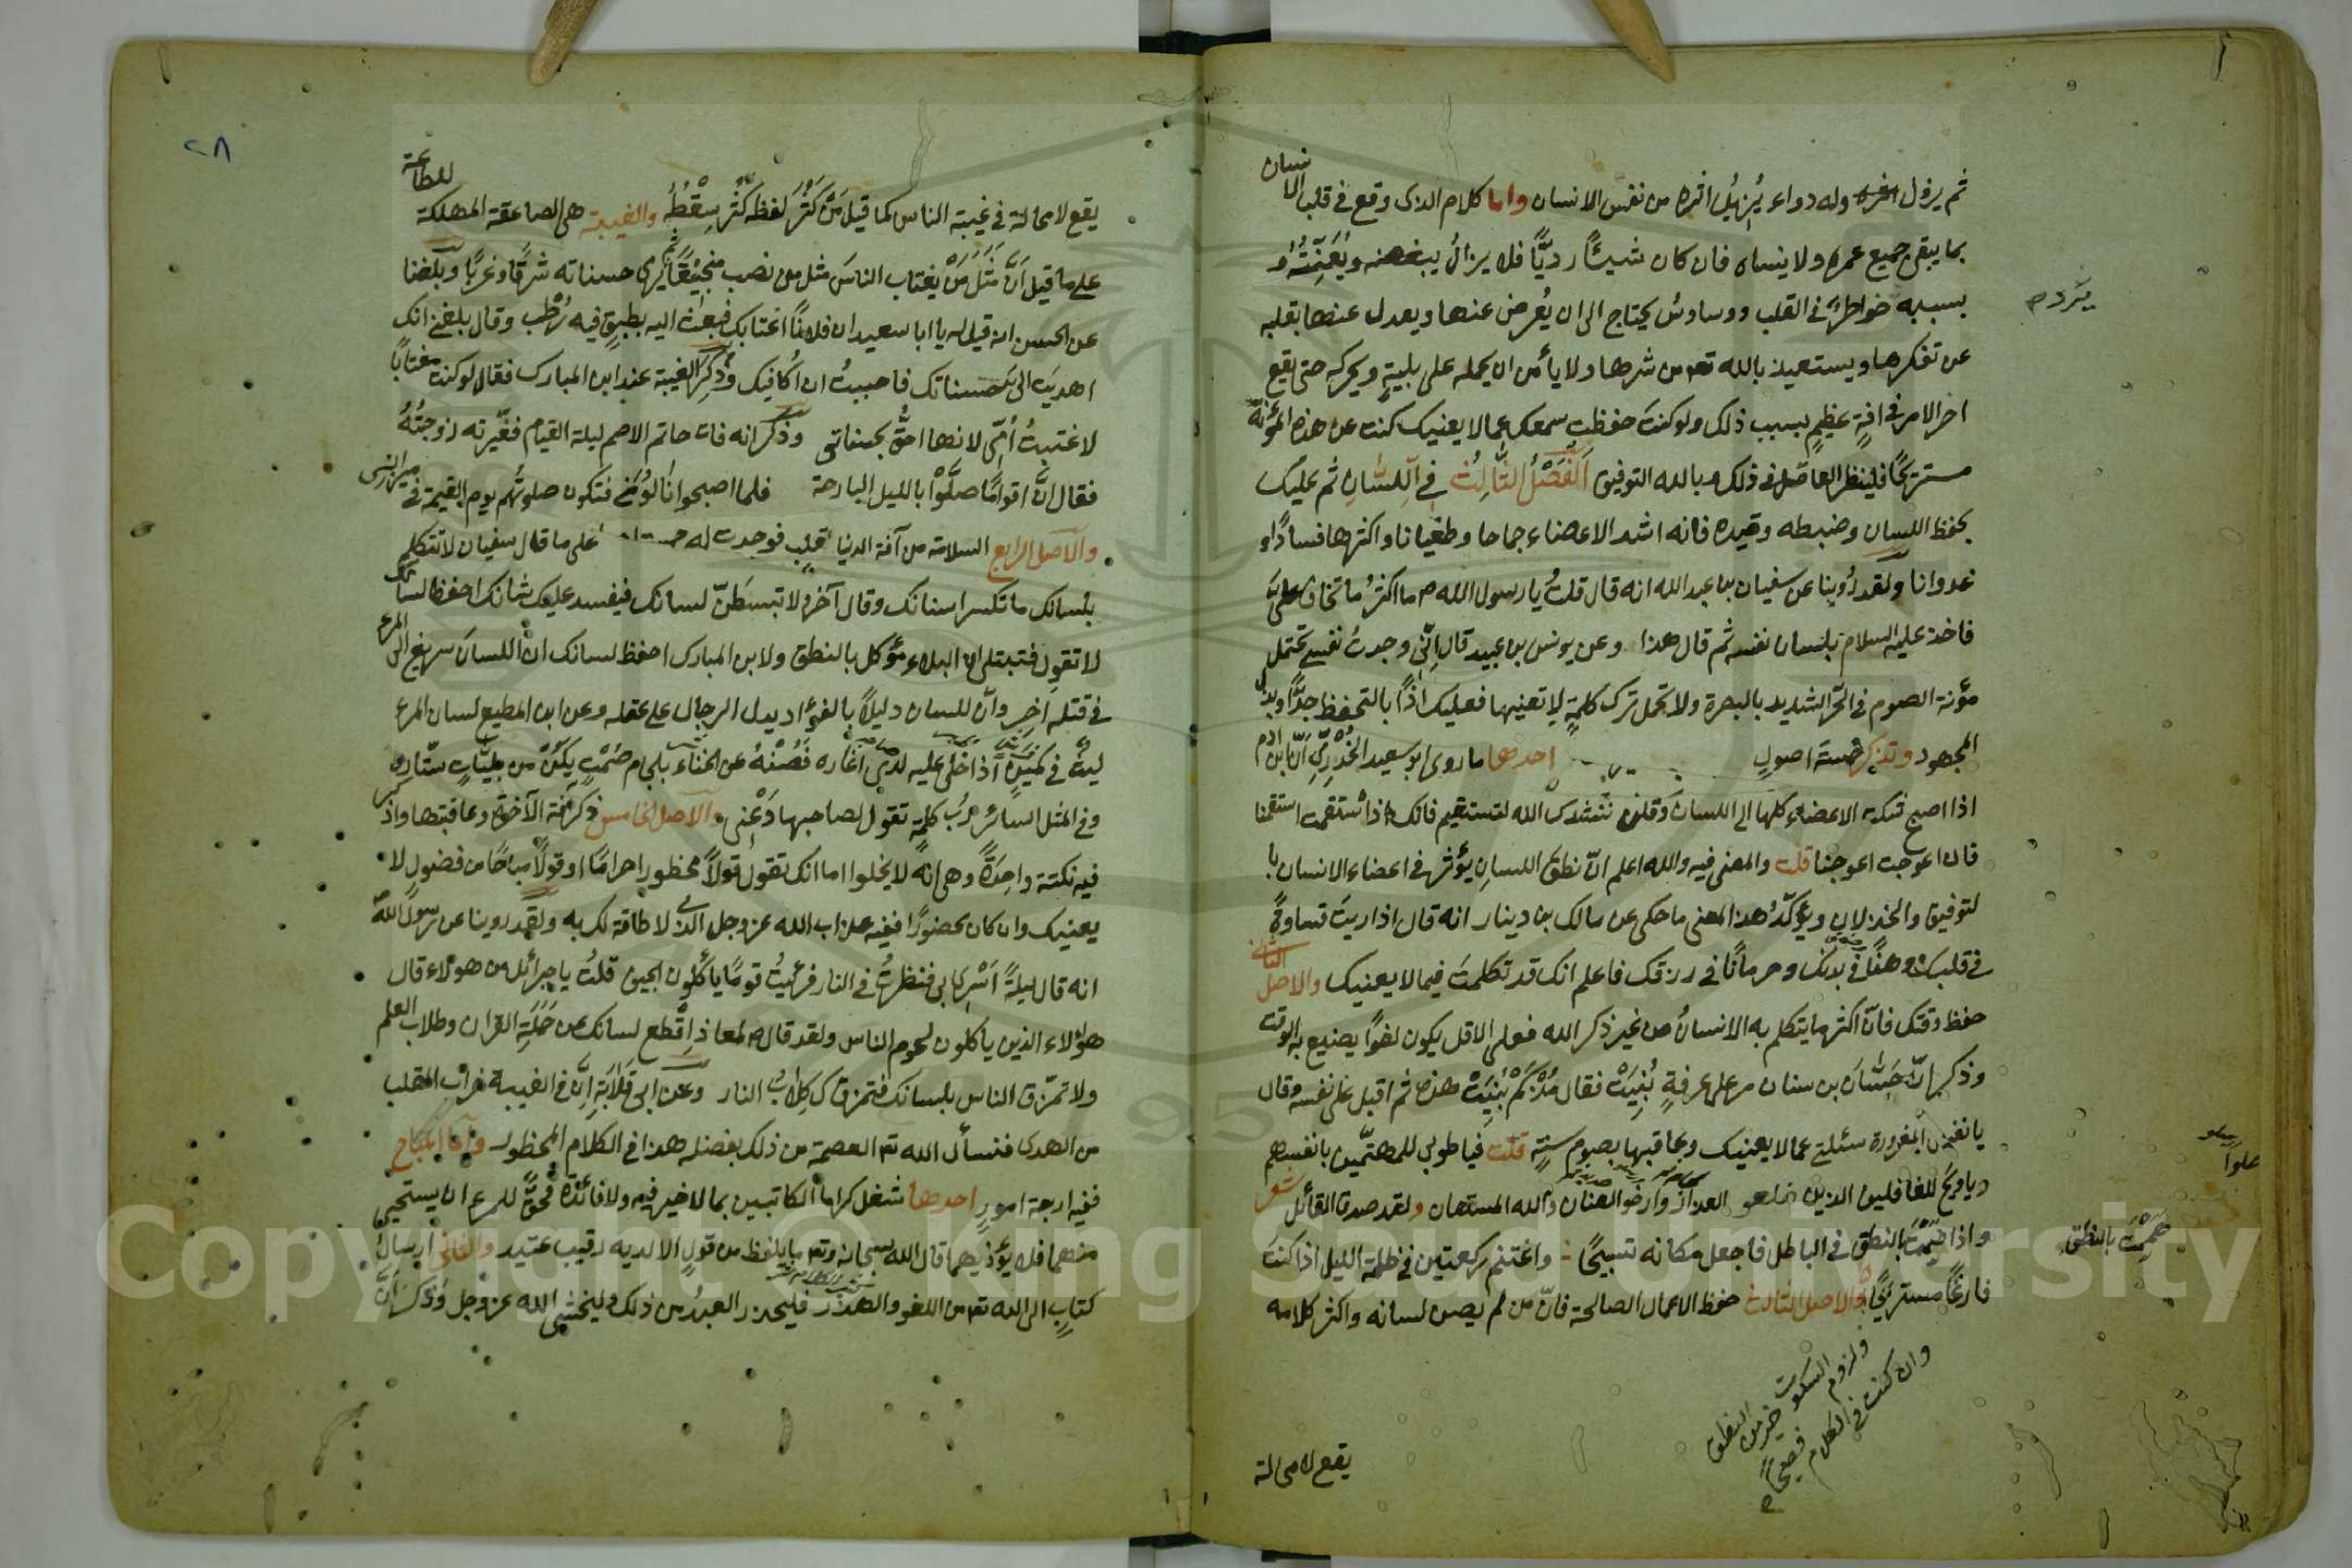 ثم يزول اثره وله دواء يُزيلُ اثره من نفس الانسان واما كلام الذى وقع فى قلب الانسان
بما يبقى جميع عمره ولا ينساه فان كان شيئًا رديًّا فلا يزالُ يبغضه ويُعَنِّتُهُ و
بسببه خواطرُ فى القلب ووساوسُ يحتاج الى ان يُعرض عنها ويعدل عنها بقلبه
عن تفكرها ويستعيذ بالله تعه من شرها ولا يأمن ان يحمله على بليةٍ ويحركه حتى يقع
اخر الامر فى افةٍ عظيمٍ بسبب ذلك ولو كنتَ حفظت سمعك عما لا يعنيك كنت عن هذه المؤنة
مستريحًا فلينظر العاقل فى ذلك وبالله التوفيق اَلْفَصْلُ الثَّالِثُ فِى اللِّسَانِ ثم عليك
بحفظ اللسان وضبطه وقيده فانه اشد الاعضاء جماحا وطغيانا واكثرها فسادًا و
عدوانا ولقد رُوِينا عن سفيان بن عبد الله انه قال قلتُ يا رسول الله ص ما اكثرُ ما تخاف علىَّ
فاخذ عليه السلام بلسان نفسه ثم قال هذا وعن يونس بن عبيد قال اِنّى وجدتُ نفسى تحتمل
مؤنة الصوم فى الحرّ الشديد بالبصرة ولا تحمل ترك كلمةٍ لا تعنيها فعليك اذًا بالتحفظ جدًّا وبذل
المجهود وتذكر خمسة اصولٍ احدها ما روى ابو سعيد الخُدْرِىّ اَنَّ ابن ادم
اذا اصبح بكرت الاعضاء كلها الى اللسان وقلن ننشدك الله لتستقيم فانك اذا استقمت استقمنا
فان اعوجت اعوجنا قلت والمعنى فيه والله اعلم انّ نطق اللسان يؤثر فى اعضاء الانسان با
لتوفيق والخذلان ويؤكّدُ هذا المعنى ما حكى عن مالك بن دينار انه قال اذا رايتَ قساوةً
فى قلبك ووهنًا فى بدنك وحرمانًا فى رزقك فاعلم انك قد تكلمتَ فيما لا يعنيك والاصل الثانى
حفظ وقتك فانّ اكثر ما يتكلم به الانسانُ من غير ذكر الله فعلى الاقل يكون لغوًا يضيع به الوقت
وذكر انّ حَسَّانَ بن سنان مر على غرفةٍ بُنِيَتْ فقال مُذْ كَمْ بُنِيَتْ هذه ثم اقبل على نفسه وقال
يا نفس المغرورة سئلتى عما لا يعنيك وعاقبها بصوم سنةٍ قلت فيا طوبى للمهتمّين بانفسهم
ويا ويحَ للغافلين الذين خلعو العذار وارخو العنان والله المستعان ولقد صدق القائل شعر
واذا هَمَمْتَ بالنطق فى الباطل فاجعل مكانه تسبيحًا واغتنم ركعتين فى ظلمة الليل اذا كنتَ
فارغًا مستريحًا والاصل الثالث حفظ الاعمال الصالحة فانّ من لم يصن لسانه واكثر كلامه
ولزوم السكوت خير من النطق
وان كنت فى الكلام فصيحًا
يقع لا محالة
هَمَمْتَ بالنطق
٢٨
يقع لا محالة فى غيبة الناس كما قيل مَنْ كَثُرَ لفظه كَثُرَ سِقْطُهُ والغيبة هى الصاعقة المهلكة للطاعة
على ما قيل اَنَّ مَثَلَ مَنْ يغتاب الناسَ مثل من نصب منجنيقًا يرمى حسناته شرقًا وغربًا وبلغنا
عن الحسن انه قيل له يا ابا سعيد ان فلانًا اغتابك فبعث اليه بطبق فيه رُطَب وقال بلغنى انك
اهديتَ الىَّ حسناتك فاحببتُ ان اُكافيك وذُكِرَ الغيبة عند ابن المبارك فقال لو كنت مغتابًا
لاغتبتُ اُمّى لانها احقُّ بحسناتى وذُكر انه فات حاتم الاصم ليلة القيام فعيّرته زوجتُهُ
فقال اِنَّ اقوامًا صلَّوْا بالليل البارحة فلما اصبحوا نالونى فتكون صلوتُهم يوم القيمة فى ميزانى
والاصل الرابع السلامة من آفة الدنيا على ما قال سفيان لا تتكلم
بلسانك ما تكسر اسنانك وقال آخر ولا تبسطَنّ لسانك فيفسد عليك شانك احفظ لسانك
لا تقول فتبتلى ان البلاء مؤكل بالنطق ولابن المبارك احفظ لسانك ان اللسان سريع الى المرء
فى قتله اخرِ وانّ للسان دليلًا بالفؤاد يدل الرجال على عقله وعن ابن المطيع لسان المرء
ليثٌ فى كمينٍ اذا خلى عليه لدى اغاره فَصُنْهُ عن الخناء بلجام صَمْتٍ يكُنْ من بليّاتٍ ستاره
وفى المثل السائر ربّ كلمةٍ تقول لصاحبها دَعْنى والاصل الخامس ذكر آفة الآخرة وعاقبتها واذكر
فيه نكتة واحِدَةً وهى انه لا يخلوا اما انك تقول قولًا محظورا حرامًا او قولًا مباحًا من فضولٍ لا
يعنيك وان كان محضورًا ففيه عذاب الله عز وجل الذى لا طاقة لك به ولقد روينا عن رسول الله
انه قال ليلةً اُسْرِىَ بى فنظرتُ فى النار فرئيتُ قومًا يأكلون الجيف قلتُ يا جبرائل من هولاء قال
هؤلاء الذين يأكلون لحوم الناس ولقد قال ص لمعاذ اِقْطَع لسانك عن حَمَلَةِ القران وطلاب العلم
ولا تمزّق الناس بلسانك فتمزقك كلابُ النار وعن ابى قَلَابَةَ اِنَّ فى الغيبة خراب القلب
من الهدى فنسأل الله تعه العصمة من ذلك بفضله هذا فى الكلام المحظور واما المباح
ففيه اربعة امورٍ احدها شغل كرامًا الكاتبين بما لا خير فيه ولا فائدة فحقٌّ للمرء ان يستحيى
منهما فلا يؤذيهما قال الله سبحانه وتعه ما يلفظ من قولٍ الا لديه رقيب عتيد والثانى ارسالُ
كتابٍ الى الله تعه من اللغو والهذر فليحذر العبدُ من ذلك وليخشى الله عز وجل وذُكر اَنَّ